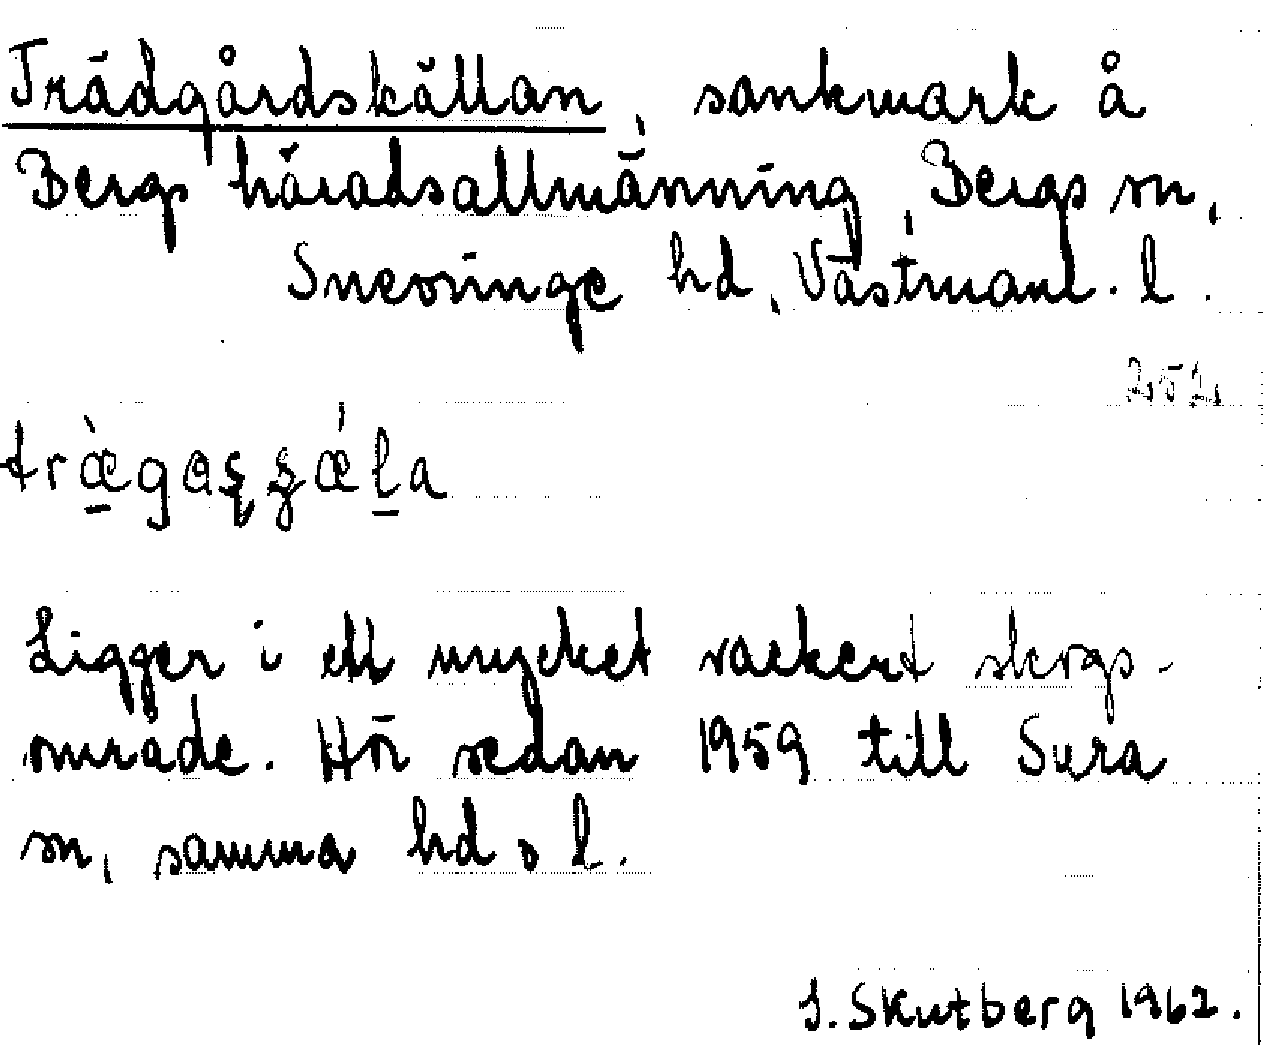 Trädgårdskällan, sankmark å
Bergs häradsallmänning, Bergs sn,
Snevringe hd, Västmanl. l.
252
Ligger i ett mycket vackert skogs-
område. Hör sedan 1959 till Sura
sn, samma hd o l.
S. Skutberg 1962.